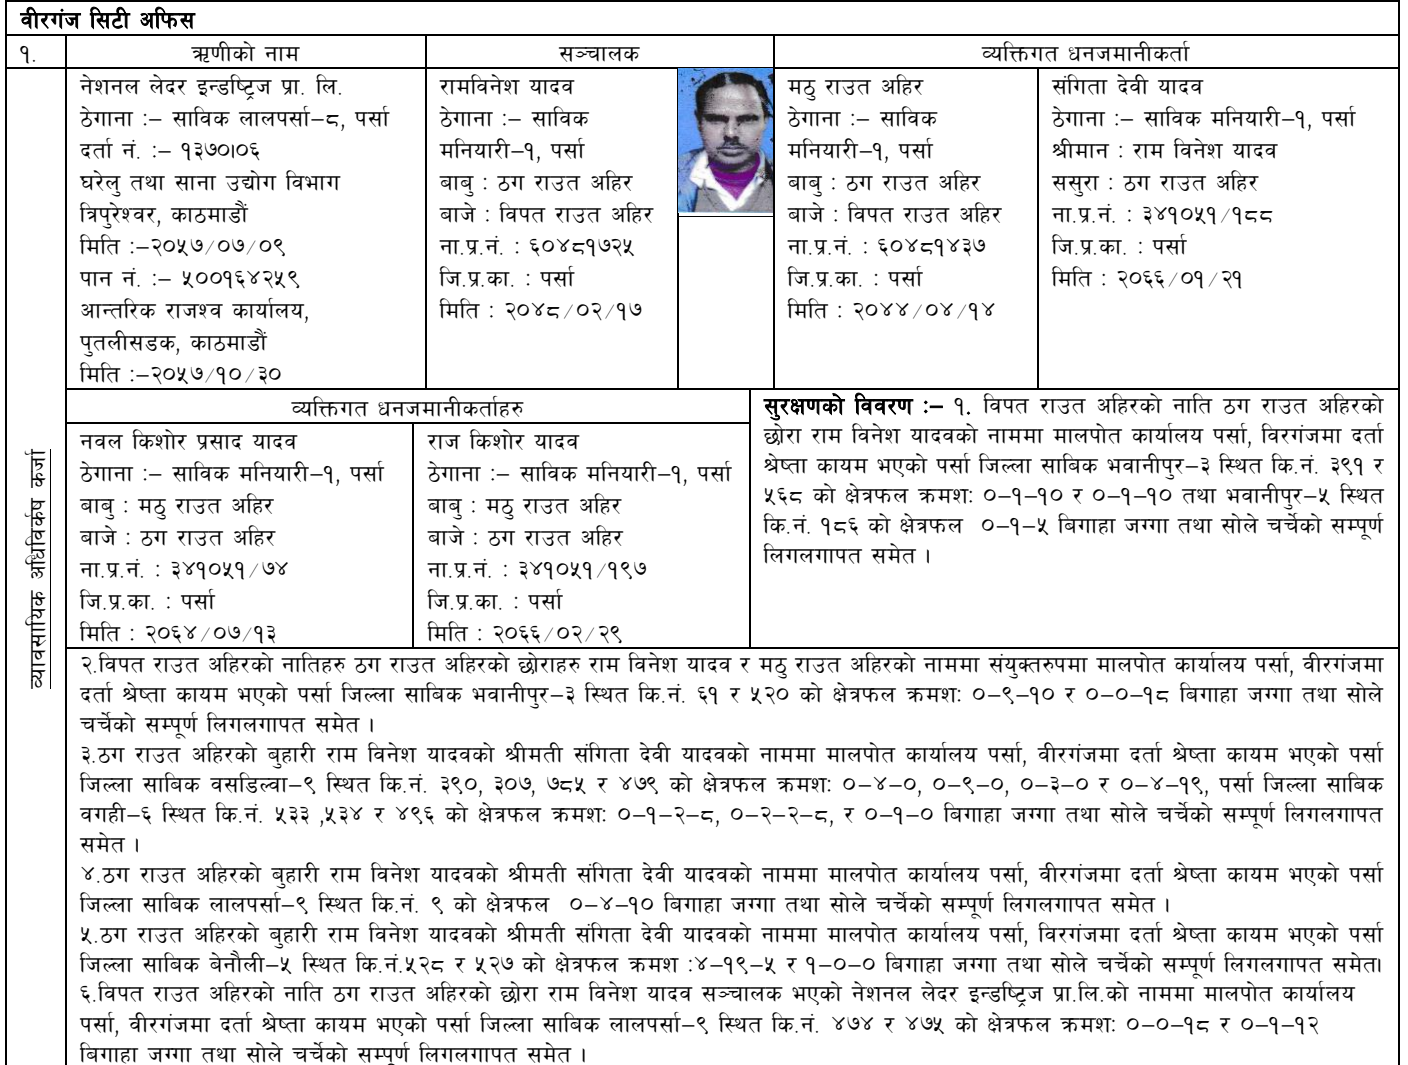 वीरगंज सिटी अफिस
१.
ऋणीको नाम
सञ्चालक
व्यक्तिगत धनजमानीकर्ता
व्यावसायिक अधिविर्कष कर्जा
नेशनल लेदर इन्डष्ट्रिज प्रा. लि.
ठेगाना :– साविक लालपर्सा–८, पर्सा
दर्ता नं. :– १३७०।०६
घरेलु तथा साना उद्योग विभाग
त्रिपुरेश्वर, काठमाडौं
मिति :–२०५७/०७/०९
पान नं. :– ५००१६४२५९
आन्तरिक राजश्व कार्यालय,
पुतलीसडक, काठमाडौं
मिति :–२०५७/१०/३०
रामविनेश यादव
ठेगाना :– साविक
मनियारी–१, पर्सा
बाबु : ठग राउत अहिर
बाजे : विपत राउत अहिर
ना.प्र.नं. : ६०४८१७२५
जि.प्र.का. : पर्सा
मिति : २०४८/०२/१७
मठु राउत अहिर
ठेगाना :– साविक
मनियारी–१, पर्सा
बाबु : ठग राउत अहिर
बाजे : विपत राउत अहिर
ना.प्र.नं. : ६०४८१४३७
जि.प्र.का. : पर्सा
मिति : २०४४/०४/१४
संगिता देवी यादव
ठेगाना :– साविक मनियारी–१, पर्सा
श्रीमान : राम विनेश यादव
ससुरा : ठग राउत अहिर
ना.प्र.नं. : ३४१०५१/१८८
जि.प्र.का. : पर्सा
मिति : २०६६/०१/२१
व्यक्तिगत धनजमानीकर्ताहरु
नवल किशोर प्रसाद यादव
ठेगाना :– साविक मनियारी–१, पर्सा
बाबु : मठु राउत अहिर
बाजे : ठग राउत अहिर
ना.प्र.नं. : ३४१०५१/७४
जि.प्र.का. : पर्सा
मिति : २०६४/०७/१३
राज किशोर यादव
ठेगाना :– साविक मनियारी–१, पर्सा
बाबु : मठु राउत अहिर
बाजे : ठग राउत अहिर
ना.प्र.नं. : ३४१०५१/१९७
जि.प्र.का. : पर्सा
मिति : २०६६/०२/२९
सुरक्षणको विवरण :– १. विपत राउत अहिरको नाति ठग राउत अहिरको
छोरा राम विनेश यादवको नाममा मालपोत कार्यालय पर्सा, विरगंजमा दर्ता
श्रेष्ता कायम भएको पर्सा जिल्ला साबिक भवानीपुर–३ स्थित कि.नं. ३९१ र
५६८ को क्षेत्रफल क्रमश: ०–१–१० र ०–१–१० तथा भवानीपुर–५ स्थित
कि.नं. १८६ को क्षेत्रफल ०–१–५ बिगाहा जग्गा तथा सोले चर्चेको सम्पूर्ण
लिगलगापत समेत ।
२.विपत राउत अहिरको नातिहरु ठग राउत अहिरको छोराहरु राम विनेश यादव र मठु राउत अहिरको नाममा संयुक्तरुपमा मालपोत कार्यालय पर्सा, वीरगंजमा
दर्ता श्रेष्ता कायम भएको पर्सा जिल्ला साबिक भवानीपुर–३ स्थित कि.नं. ६१ र ५२० को क्षेत्रफल क्रमश: ०–९–१० र ०–०–१८ बिगाहा जग्गा तथा सोले
चर्चेको सम्पूर्ण लिगलगापत समेत ।
३.ठग राउत अहिरको बुहारी राम विनेश यादवको श्रीमती संगिता देवी यादवको नाममा मालपोत कार्यालय पर्सा, वीरगंजमा दर्ता श्रेष्ता कायम भएको पर्सा
जिल्ला साबिक वसडिल्वा–९ स्थित कि.नं. ३९०, ३०७, ७८५ र ४७९ को क्षेत्रफल क्रमश: ०–४–०, ०–९–०, ०–३–० र ०–४–१९, पर्सा जिल्ला साबिक
वगही–६ स्थित कि.नं. ५३३ ,५३४ र ४९६ को क्षेत्रफल क्रमश: ०–१–२–८, ०–२–२–८, र ०–१–० बिगाहा जग्गा तथा सोले चर्चेको सम्पूर्ण लिगलगापत
समेत ।
४.ठग राउत अहिरको बुहारी राम विनेश यादवको श्रीमती संगिता देवी यादवको नाममा मालपोत कार्यालय पर्सा, वीरगंजमा दर्ता श्रेष्ता कायम भएको पर्सा
जिल्ला साबिक लालपर्सा–९ स्थित कि.नं. ९ को क्षेत्रफल ०–४–१० बिगाहा जग्गा तथा सोले चर्चेको सम्पूर्ण लिगलगापत समेत ।
५.ठग राउत अहिरको बुहारी राम विनेश यादवको श्रीमती संगिता देवी यादवको नाममा मालपोत कार्यालय पर्सा, विरगंजमा दर्ता श्रेष्ता कायम भएको पर्सा
जिल्ला साबिक बेनौली–५ स्थित कि.नं.५२८ र ५२७ को क्षेत्रफल क्रमश :४–१९–५ र १–०–० बिगाहा जग्गा तथा सोले चर्चेको सम्पूर्ण लिगलगापत समेत।
६.विपत राउत अहिरको नाति ठग राउत अहिरको छोरा राम विनेश यादव सञ्चालक भएको नेशनल लेदर इन्डष्ट्रिज प्रा.लि.को नाममा मालपोत कार्यालय
पर्सा, वीरगंजमा दर्ता श्रेष्ता कायम भएको पर्सा जिल्ला साबिक लालपर्सा–९ स्थित कि.नं. ४७४ र ४७५ को क्षेत्रफल क्रमश: ०–०–१८ र ०–१–१२
बिगाहा जग्गा तथा सोले चर्चेको सम्पूर्ण लिगलगापत समेत ।